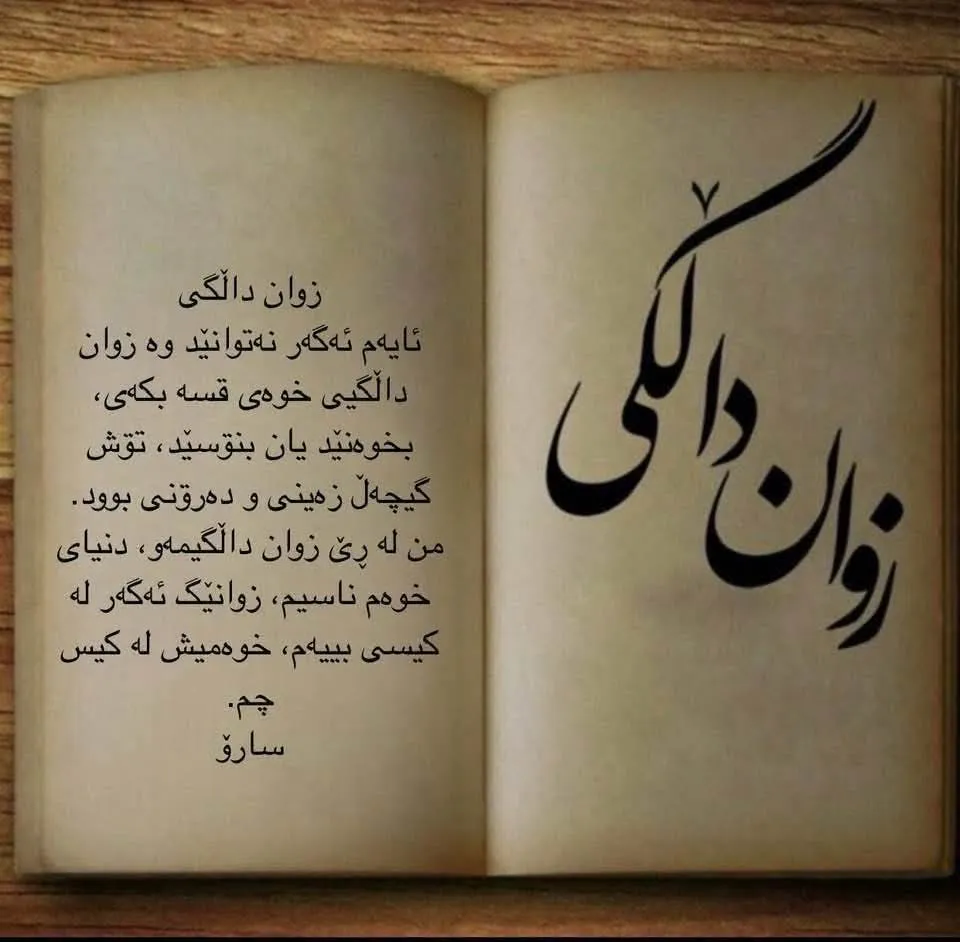 زوان داڵگی
زوان داڵگی
ئایەم ئەگەر نەتوانێد وە زوان
داڵگیی خوەی قسە بکەی،
بخوەنێد یان بنۆسێد، تۆش
گیچەڵ زەینی و دەرۆنی بوود.
من لە ڕێ زوان داڵگیمەو، دنیای
خوەم ناسیم، زوانێگ ئەگەر لە
کیسی بییەم، خوەمیش لە کیس
چم.
سارۆ